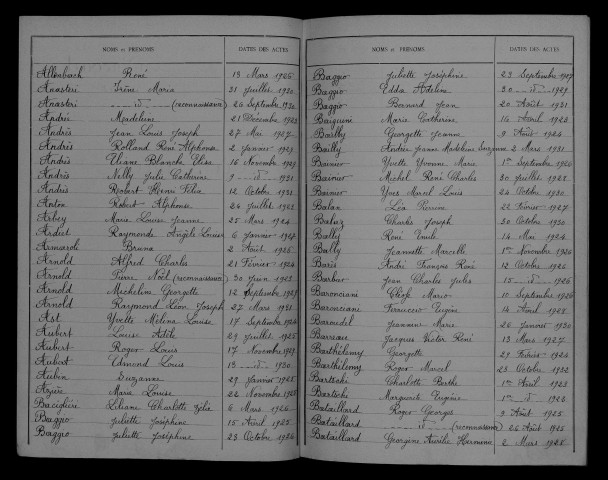 NOMS et PRÉNOMS DATES DES ACTES
Allenbach René 13 Mars 1926
Anastéri Irène Maria 31 Juillet 1930
Anastéri - d° - (reconnaissance) 26 Septembre 1930
Andrié Madeleine 21 Décembre 1923
Andrés Jean Louis Joseph 27 Mai 1927
Andrés Rolland René Alphonse 2 Janvier 1929
Andrés Eliane Blanche Elise 16 Novembre 1929
Andrés Nelly Julie Catherine 9 - d° - 1931
Andrés Robert Henri Félix 12 Octobre 1931
Anton Robert Alphonse 24 Juillet 1923
Arbey Marie Louise Jeanne 25 Mars 1924
Ardiet Raymonde Angèle Louise 6 Janvier 1927
Armaroli Bruna 2 Août 1926
Arnold Alfred Charles 21 Février 1924
Arnold Pierre Noël (reconnaissance) 30 Juin 1923
Arnold Micheline Georgette 12 Septembre 1929
Arnold Raymond Léon Joseph 27 Mars 1931
Ast Yvette Mélina Louise 17 Septembre 1924
Aubert Louise Adèle 29 Juillet 1925
Aubert Roger Louis 17 Novembre 1929
Aubert Edmond Louis 13 - d° - 1930
Aubin Suzanne 29 Janvier 1925
Marie Louise 22 Novembre
Liliane Charlotte 6 Mars 1926
Baggio Juliette Joséphine 15 Avril 1925
Baggio Juliette Joséphine 23 Octobre 1926
NOMS et PRÉNOMS DATES DES ACTES
Baggio Juliette Joséphine 23 Septembre 1927
Baggio Edda Adelina 30 - d° - 1929
Baggio Bernard Jean 20 Août 1931
Marie Catherine 16 Avril 1923
Bailly Georgette Jeanne 9 Août 1924
Bailly Andrée Jeanne Madeleine Suzanne 2 Mars 1931
Bainier Yvette Yvonne Marie 1er Septembre 1926
Bainier Michel René Charles 30 Juillet 1928
Bainier Yves Marcel Louis 24 Octobre 1930
Balan Léa Pierrine 22 Février 1927
Baluz Charles Joseph 30 Octobre 1930
Bally René Emile 14 Mai 1924
Bally Jeannette Marcelle 1er Novembre 1926
Baris André François René 12 Octobre 1926
Barbier Jean Charles Jules 15 - d° - 1926
Baronciani Mario 10 Septembre 1926
Baronciani Ferruccio Eugène 14 Avril 1928
Baroudel Jeannine Marie 26 Janvier 1930
Barreaux Jacques Victor René 13 Mars 1927
Barthélémy Georgette 29 Février 1924
Barthélémy Roger Marcel 23 Octobre 1932
Bartschi Charlotte Berthe 1er Avril 1923
Bartschi Marguerite Eugénie 1er - d° - 1923
Bataillard Roger Georges 9 Août 1925
Bataillard - d° - (reconnaissance) 26 Août 1925
Bataillard Georgine Aurélie Hermine 2 Mars 1928